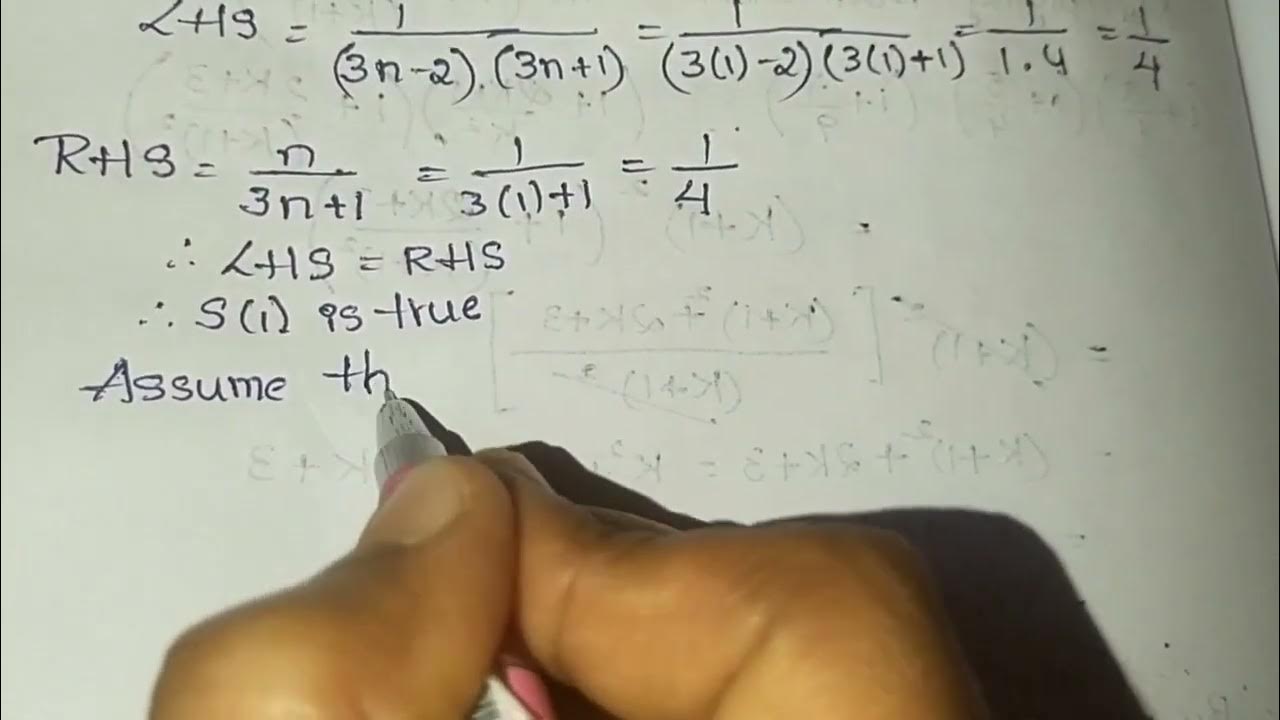 LHS = 1/((3n-2).(3n+1)) = 1/((3(1)-2)(3(1)+1)) = 1/(1.4) = 1/4
RHS = n/(3n+1) = 1/(3(1)+1) = 1/4
∴ LHS = RHS
∴ S(1) is true
Assume th